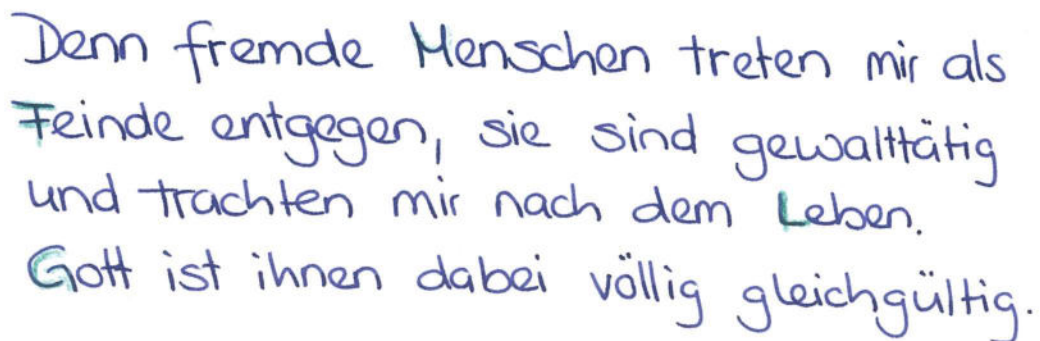 Denn fremde Menschen treten mir als
Feinde entgegen, sie sind gewalttätig
und trachten mir nach dem Leben.
Gott ist ihnen dabei völlig gleichgültig.